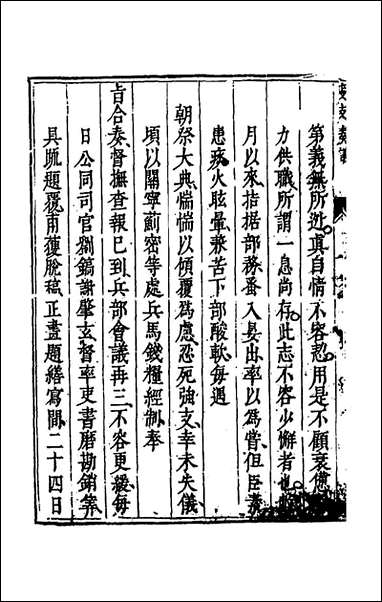 第義無所逃真自情不容忍用是不顧衰憊
力供職所謂一息尚存此志不容少懈者也
月以來拮据部務蚤入晏出率以為常但臣素
患痰火眩暈兼苦下部酸軟每遇
朝祭大典惴惴以傾覆為慮忍死強支幸未失儀
頃以關寧薊密等處兵馬錢糧經制奉
旨合奏督撫查報已到兵部會議再三不容更緩每
日公同司官劉鎬謝肇玄督率吏書磨勘銷筭
具疏題覆甫獲脫稿正畫題繕寫間二十四日